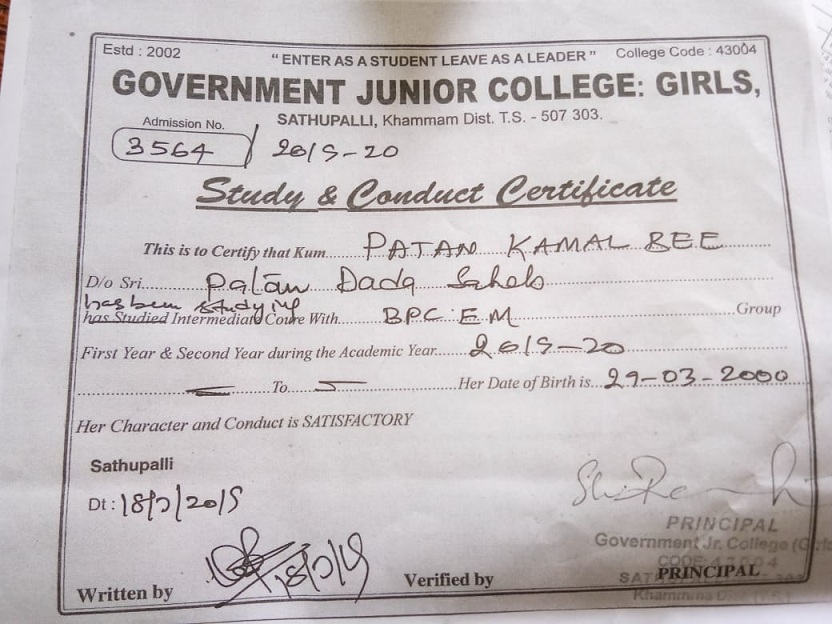 Estd : 2002 "ENTER AS A STUDENT LEAVE AS A LEADER" College Code : 43004
GOVERNMENT JUNIOR COLLEGE: GIRLS,
SATHUPALLI, Khammam Dist. T.S. - 507 303.
Admission No.
3564 / 2019-20
Study & Conduct Certificate
This is to Certify that Kum...... PATAN KAMAL BEE
D/o Sri.......... Patan Dada Saheb
has been studying
has Studied Intermediate Coure With........ BPC EM ........Group
First Year & Second Year during the Academic Year...... 2019-20
To...... Her Date of Birth is... 29-03-2000
Her Character and Conduct is SATISFACTORY
Sathupalli
Dt : 18/7/2019
PRINCIPAL
Government Jr. College
PRINCIPAL
18/7/19
Written by Verified by